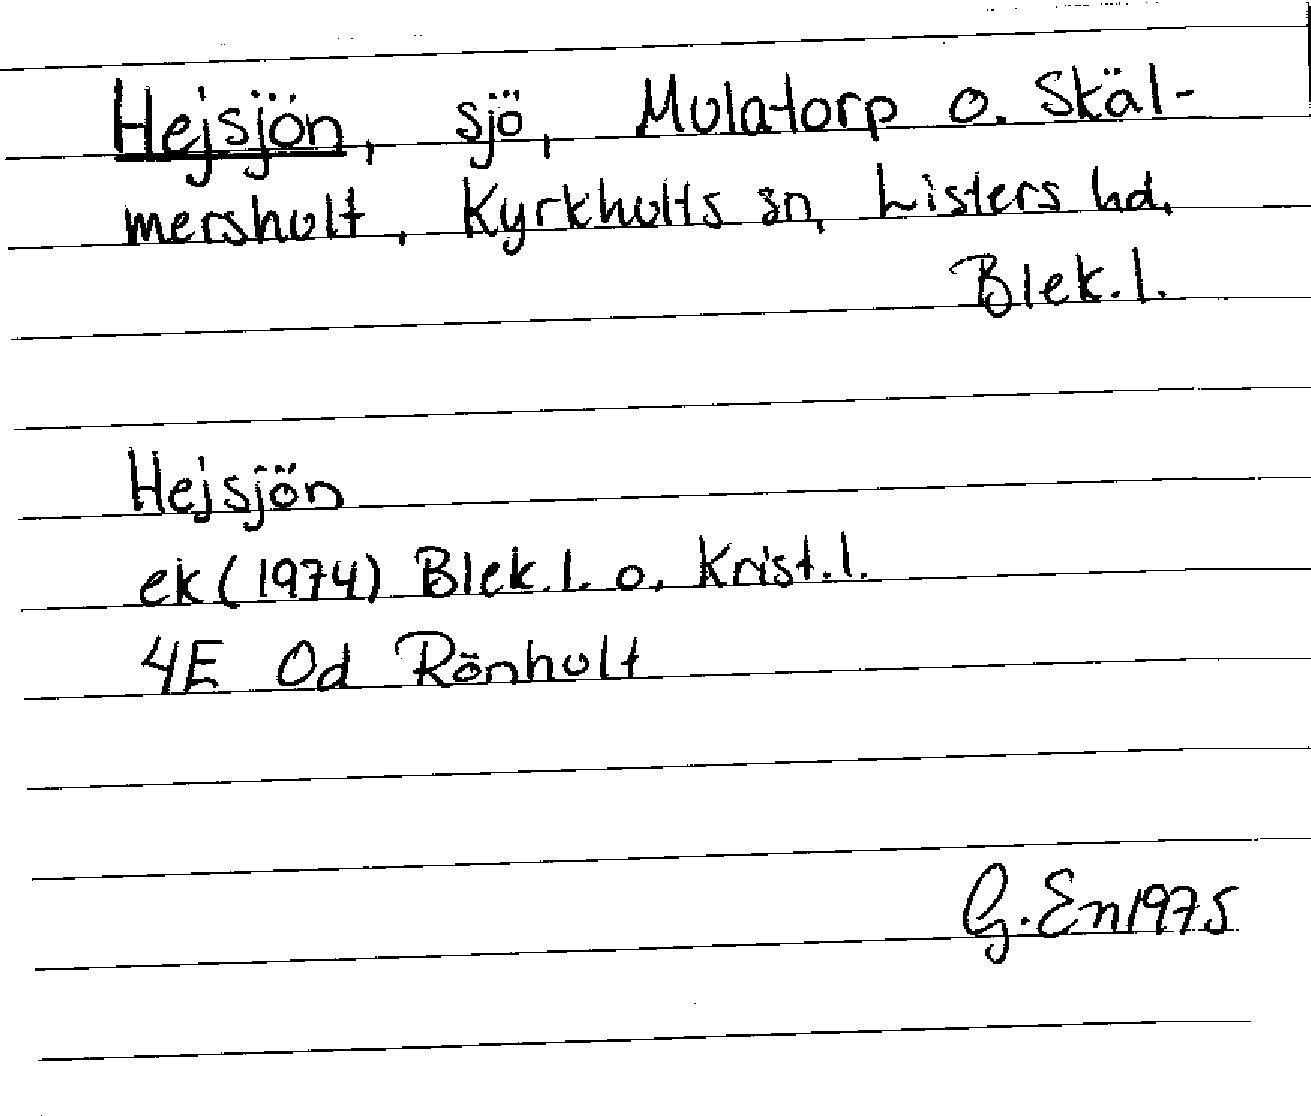 Hejsjön, sjö, Mulatorp o. Skäl-
mersholt, Kyrkhults sn, Listers hd,
Blek.l.
Hejsjön
ek (1974) Blek.l. o. Krist.l.
4E 0d Rönholt
G. En 1975